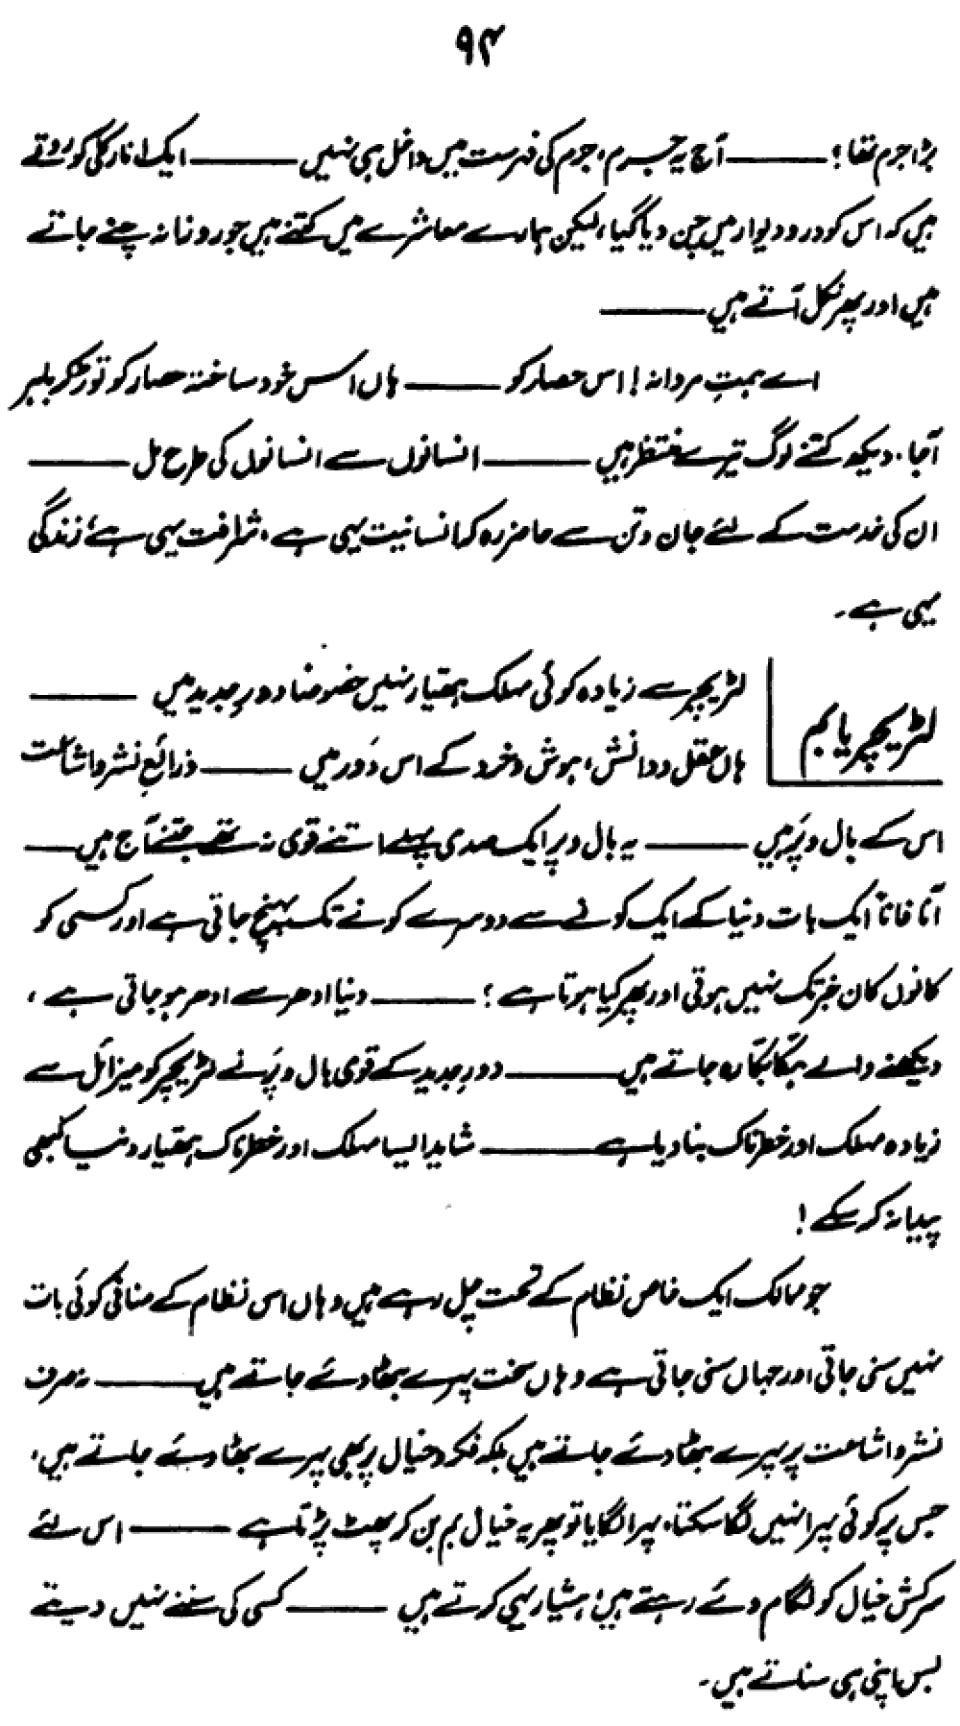 ۹۴
بڑا جرم تھا؟ ——— آج یہ جرم، جرم کی فہرست میں داخل ہی نہیں ——— ایک انار کلی کو روتے
ہیں کہ اس کو در و دیوار میں چن دیا گیا، لیکن ہمارے معاشرے میں کتنے ہیں جو روزانہ چنے جاتے
ہیں اور پھر نکل آتے ہیں ———
اے ہمتِ مردانہ! اس حصار کو ——— ہاں اس خود ساختہ حصار کو توڑ کر باہر
آجا، دیکھ کتنے لوگ تیرے منتظر ہیں ——— انسانوں سے انسانوں کی طرح مل ———
ان کی خدمت کے لئے جان و تن سے حاضر رہ کہ انسانیت یہی ہے، شرافت یہی ہے، زندگی
یہی ہے۔
لٹریچر یا بم
لٹریچر سے زیادہ کوئی مہلک ہتھیار نہیں خصوصاً دورِ جدید میں ———
ہاں عقل و دانش، ہوش و خرد کے اس دَور میں ——— ذرائعِ نشر و اشاعت
اس کے بال و پَر ہیں ——— یہ بال و پر ایک صدی پہلے اتنے قوی نہ تھے جتنے آج ہیں ———
آناً فاناً ایک بات دنیا کے ایک کونے سے دوسرے کونے تک پہنچ جاتی ہے اور کسی کو
کانوں کان خبر تک نہیں ہوتی اور پھر کیا ہوتا ہے؟ ——— دنیا ادھر سے ادھر ہو جاتی ہے،
دیکھنے والے ہکّا بکّا رہ جاتے ہیں ——— دورِ جدید کے قوی بال و پَر نے لٹریچر کو میزائل سے
زیادہ مہلک اور خطرناک بنا دیا ہے ——— شاید ایسا مہلک اور خطرناک ہتھیار دنیا کبھی
پیدا نہ کر سکے!
جو ممالک ایک خاص نظام کے تحت چل رہے ہیں وہاں اس نظام کے منافی کوئی بات
نہیں سنی جاتی اور جہاں سنی جاتی ہے وہاں سخت پہرے بٹھا دئے جاتے ہیں ——— نہ صرف
نشر و اشاعت پر پہرے بٹھا دئے جاتے ہیں بلکہ فکر و خیال پر بھی پہرے بٹھا دئے جاتے ہیں،
جس پر کوئی پہرا نہیں لگا سکتا، پہرا لگایا تو پھر یہ خیال بم بن کر پھٹ پڑتا ہے ——— اس لئے
سرکش خیال کو لگام دئے رہتے ہیں؛ ہشیار یہی کرتے ہیں ——— کسی کی سننے نہیں دیتے
بس اپنی ہی سناتے ہیں۔